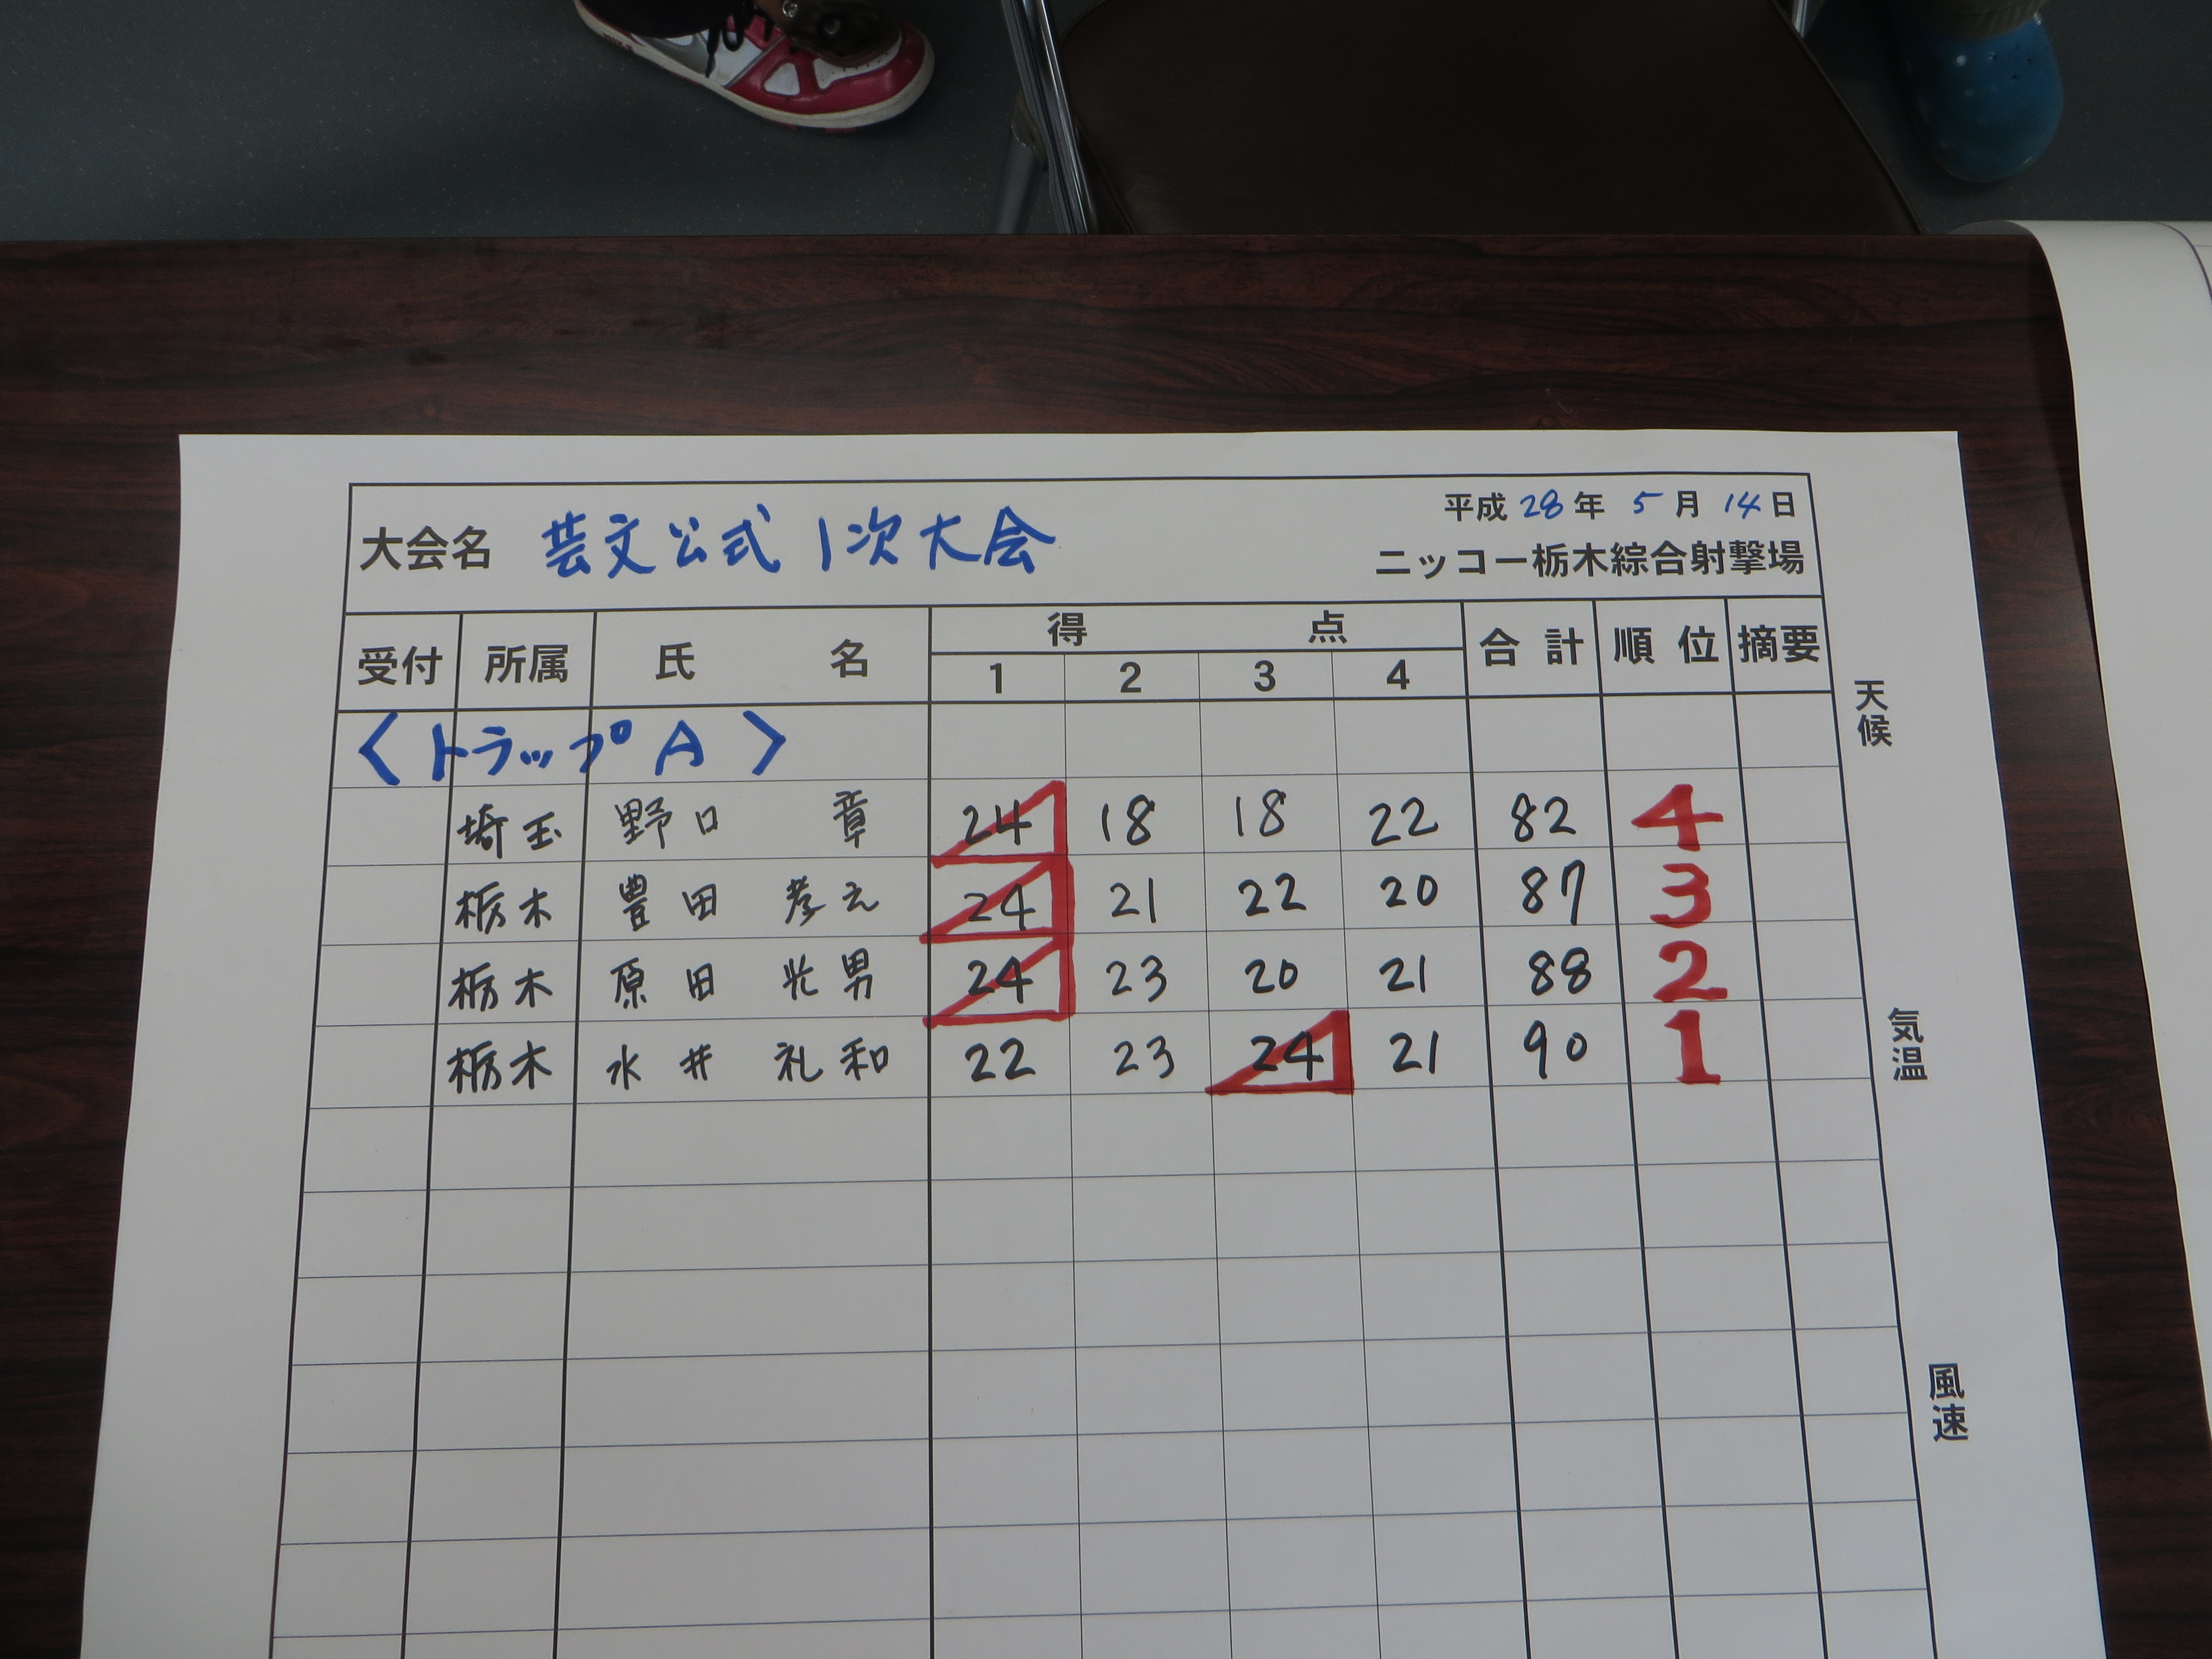 平成 28 年 5 月 14 日
大会名 芸文公式 1次大会
ニッコー栃木綜合射撃場
受付 所属 氏名 得点 合計 順位 摘要
1 2 3 4
〈トラップA〉
埼玉 野口 章 24 18 18 22 82 4
栃木 豊田 孝元 24 21 22 20 87 3
栃木 原田 光男 24 23 20 21 88 2
栃木 水井 礼和 22 23 24 21 90 1
天候
気温
風速